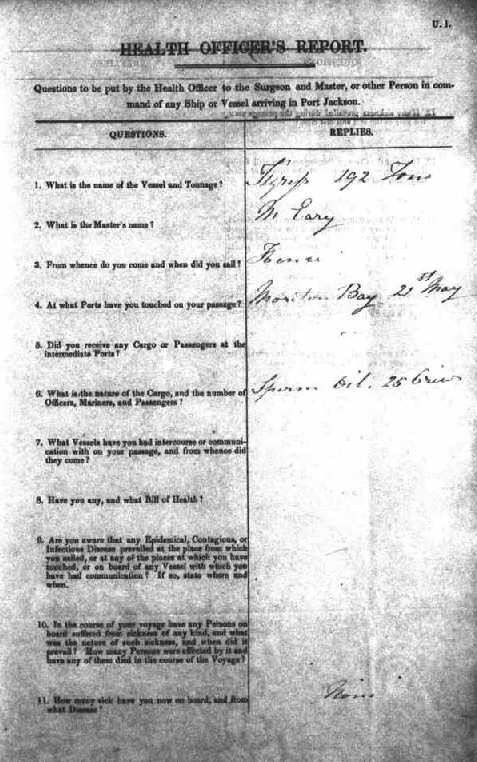 U. 1.
HEALTH OFFICER'S REPORT.
Questions to be put by the Health Officer to the Surgeon and Master, or other Person in com-
mand of any Ship or Vessel arriving in Port Jackson.
QUESTIONS.
REPLIES.
1. What is the name of the Vessel and Tonnage?
192 Tons
2. What is the Master's name?
3. From whence do you come and when did you sail?
4. At what Ports have you touched on your passage?
Moreton Bay 21st May
5. Did you receive any Cargo or Passengers at the
Intermediate Ports?
6. What is the nature of the Cargo, and the number of
Officers, Mariners, and Passengers?
Sperm Oil. 25 Crew
7. What Vessels have you had intercourse or communi-
cation with on your passage, and from whence did
they come?
8. Have you any, and what Bill of Health?
9. Are you aware that any Epidemical, Contagious, or
Infectious Disease prevailed at the place from which
you sailed, or at any of the places at which you have
touched, or on board of any Vessel with which you
have had communication? If so, state where and
when.
10. In the course of your voyage have any Persons on
board suffered from sickness of any kind, and what
was the nature of such sickness, and when did it
prevail? How many Persons were affected by it and
have any of them died in the course of the Voyage?
11. How many sick have you now on board, and from
what Disease?
None